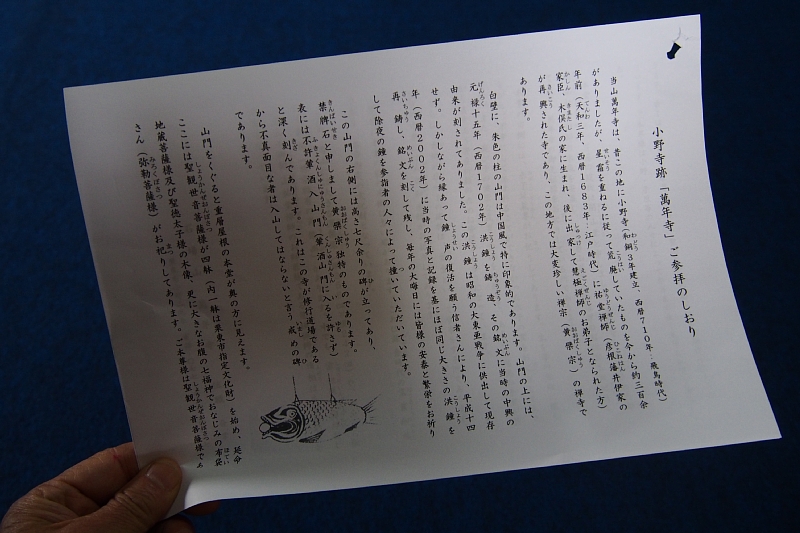 小野寺跡「萬年寺」ご参拝のしおり
当山萬年寺は、昔この地に小野寺(和銅3年建立、西暦710年:飛鳥時代)
がありましたが、星霜を重ねるに従って荒廃していたものを今から約三百余
年前(天和三年、西暦1683年、江戸時代)に祐堂禅師(彦根藩井伊家の
家臣、木俣氏の家に生まれ、後に出家して慧極禅師のお弟子となられた方)
が再興された寺であり、この地方では大変珍しい禅宗(黄檗宗)の禅寺で
あります。
白壁に、朱色の柱の山門は中国風で特に印象的であります。山門の上には、
元禄十五年(西暦1702年)洪鐘を鋳造、その銘文に当時の中興の
由来が刻されてありました。この洪鐘は昭和の大東亜戦争に供出して現存
せず。しかしながら縁あって鐘声の復活を願う信者さんにより、平成十四
年(西暦2002年)に当時の写真と記録を基にほぼ同じ大きさの洪鐘を
再鋳し、銘文を刻して残し、毎年の大晦日には皆様の安泰と繁栄をお祈り
して除夜の鐘を参詣者の人々によって撞いていただいています。
この山門の右側には高さ七尺余りの碑が立ってあり、
禁牌石と申しまして黄檗宗独特のものであります。
表には不許葷酒入山門(葷酒山門に入るを許さず)
と深く刻んであります。これはこの寺が修行道場である
から不真面目な者は入山してはならないと言う戒めの碑
であります。
山門をくぐると重層屋根の本堂が奥の方に見えます。
ここには聖観世音菩薩様が四躰(内一躰は栗東市指定文化財)を始め、延命
地蔵菩薩様及び聖徳太子様の木像、更に大きなお腹の七福神でおなじみの布袋
さん(弥勒菩薩様)がお祀りしてあります。ご本尊様は聖観世音菩薩様であ